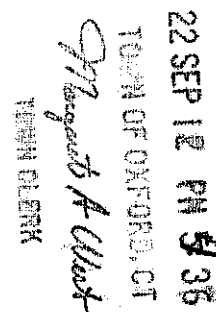 22 SEP 12 PM 5 36
TOWN OF OXFORD, CT
Margaret A West
TOWN CLERK